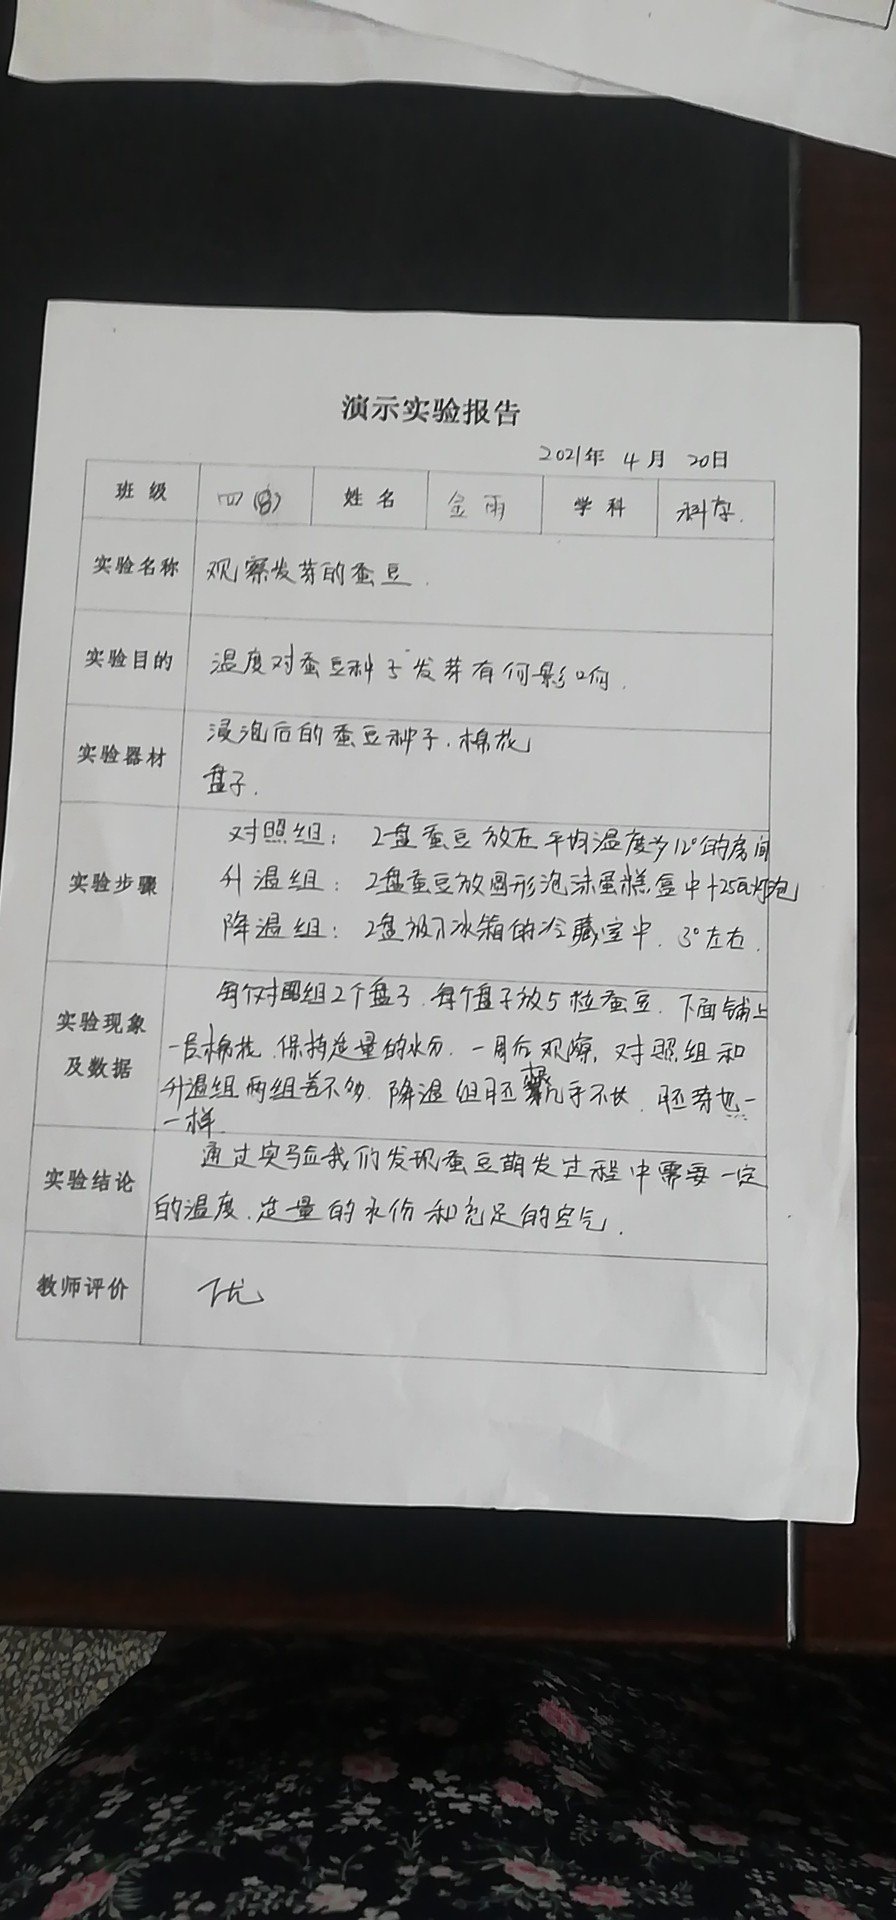 演示实验报告
2021年 4月 20日
班级 四(8) 姓名 金雨 学科 科学.
实验名称 观察发芽的蚕豆.
实验目的 温度对蚕豆种子发芽有何影响.
实验器材 浸泡后的蚕豆种子.棉花
盘子.
实验步骤
对照组: 2盘蚕豆放在平均温度为12°的房间
升温组: 2盘蚕豆放圆形泡沫蛋糕盒中+25瓦灯泡
降温组: 2盘放入冰箱的冷藏室中. 3°左右.
实验现象及数据
每个对照组2个盘子.每个盘子放5粒蚕豆.下面铺上
一层棉花.保持定量的水分.一周后观察.对照组和
升温组两组差不多.降温组胚根几乎不长.胚芽也一
一样.
实验结论
通过实验我们发现蚕豆萌发过程中需要一定
的温度.定量的水份和充足的空气.
教师评价 优